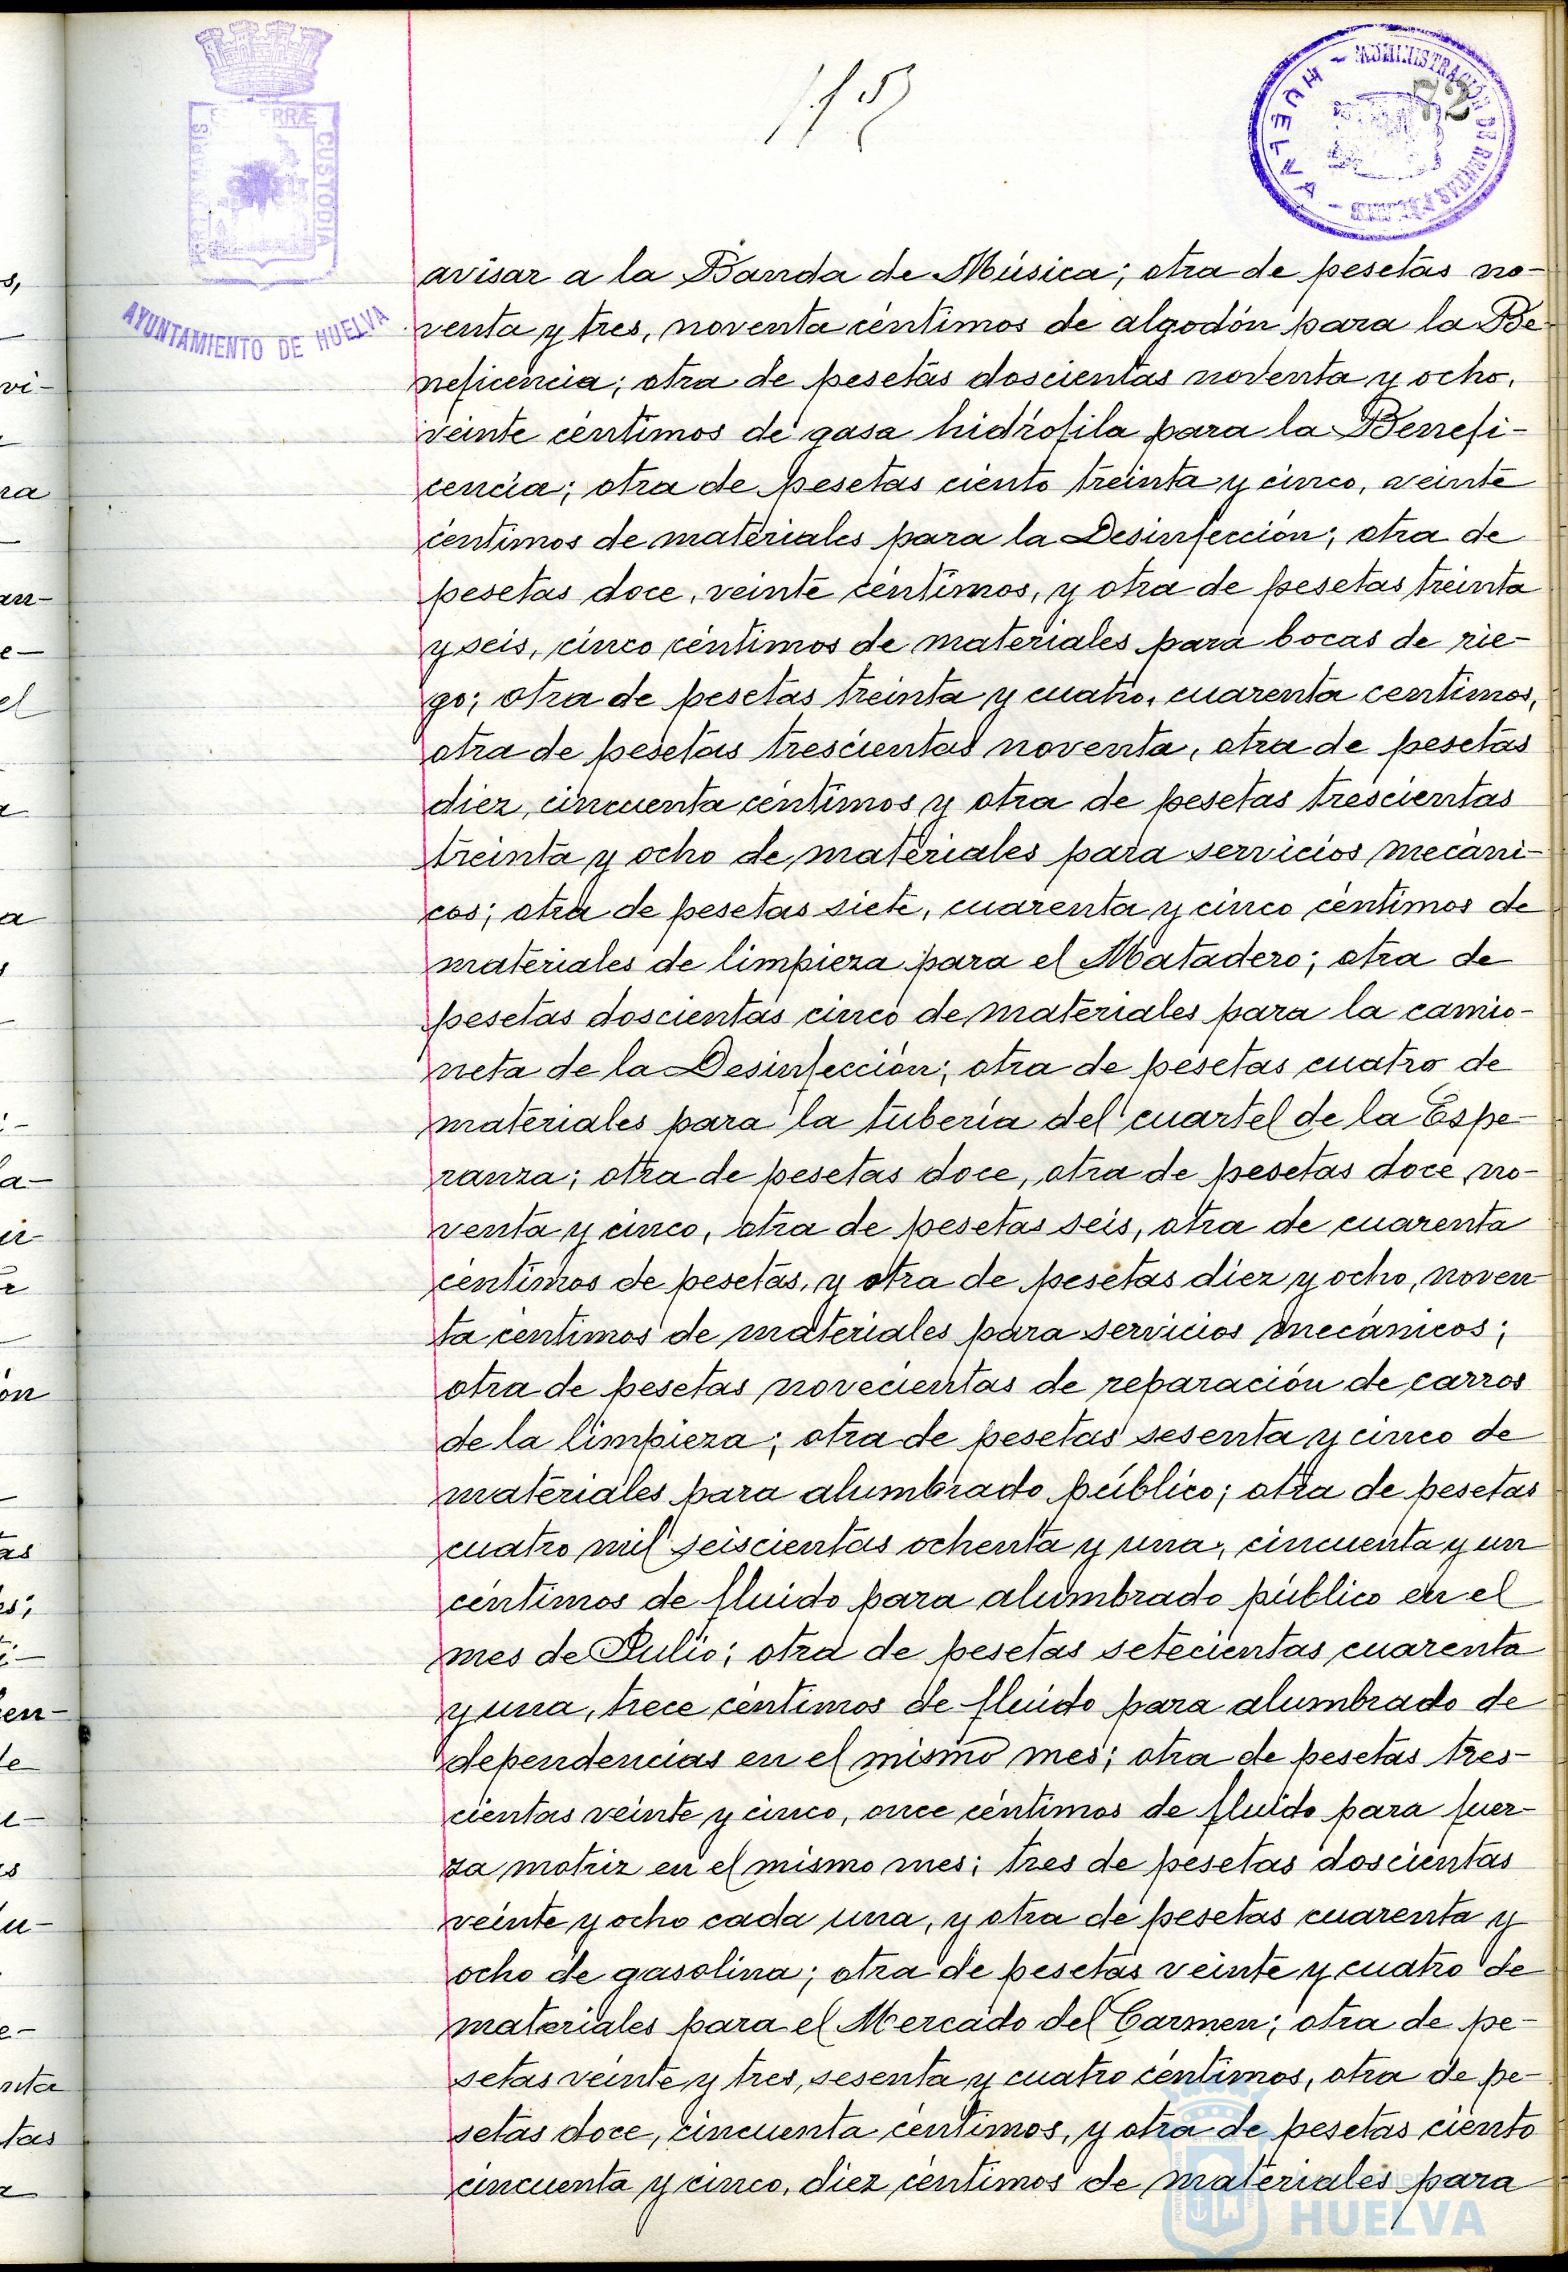 72
ADMINISTRACIÓN DE RENTAS
HUELVA
TERRÆ
CUSTODIA
AYUNTAMIENTO DE HUELVA
avisar a la Banda de Música; otra de pesetas no-
venta y tres, noventa céntimos de algodón para la Be
neficencia; otra de pesetas doscientas noventa y ocho,
veinte céntimos de gasa hidrófila para la Benefi-
cencia; otra de pesetas ciento treinta y cinco, veinte
céntimos de materiales para la Desinfección; otra de
pesetas doce, veinte céntimos, y otra de pesetas treinta
y seis, cinco céntimos de materiales para bocas de rie-
go; otra de pesetas treinta y cuatro, cuarenta centimos,
otra de pesetas trescientas noventa, otra de pesetas
diez, cincuenta céntimos y otra de pesetas trescientas
treinta y ocho de materiales para servicios mecáni-
cos; otra de pesetas siete, cuarenta y cinco céntimos de
materiales de limpieza para el Matadero; otra de
pesetas doscientas cinco de materiales para la camio-
neta de la Desinfección; otra de pesetas cuatro de
materiales para la tubería del cuartel de la Espe-
ranza; otra de pesetas doce, otra de pesetas doce, no-
venta y cinco, otra de pesetas seis, otra de cuarenta
centimos de pesetas, y otra de pesetas diez y ocho, noven
ta centimos de materiales para servicios mecánicos;
otra de pesetas novecientas de reparación de carros
de la limpieza; otra de pesetas sesenta y cinco de
materiales para alumbrado público; otra de pesetas
cuatro mil seiscientas ochenta y una, cincuenta y un
céntimos de fluido para alumbrado público en el
mes de Julio; otra de pesetas setecientas cuarenta
y una, trece céntimos de fluido para alumbrado de
dependencias en el mismo mes; otra de pesetas tres-
cientas veinte y cinco, once céntimos de fluído para fuer-
za motriz en el mismo mes; tres de pesetas doscientas
veinte y ocho cada una, y otra de pesetas cuarenta y
ocho de gasolina; otra de pesetas veinte y cuatro de
materiales para el Mercado del Carmen; otra de pe-
setas veinte y tres, sesenta y cuatro céntimos, otra de pe-
setas doce, cincuenta céntimos, y otra de pesetas ciento
cincuenta y cinco, diez céntimos de materiales para
HUELVA